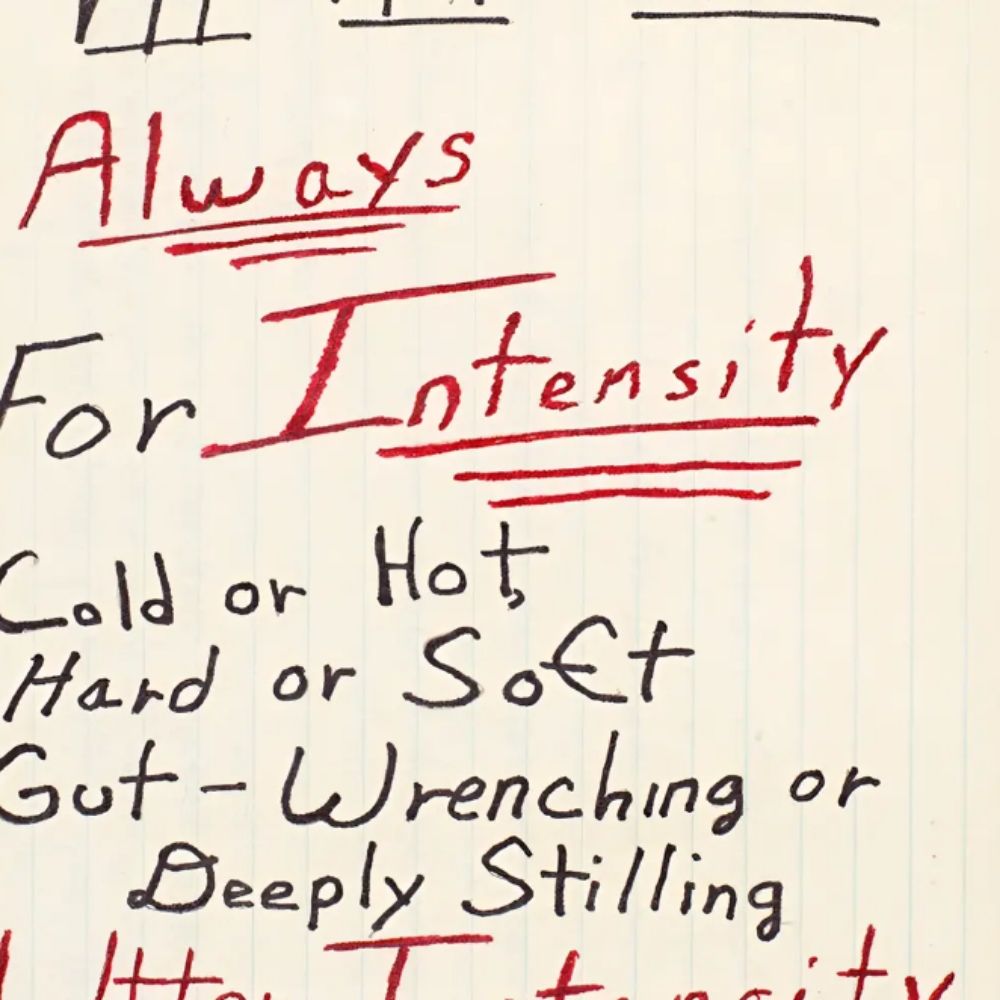 Always
For Intensity
Cold or Hot,
Hard or Soft
Gut-Wrenching or
Deeply Stilling
Utter Intensity